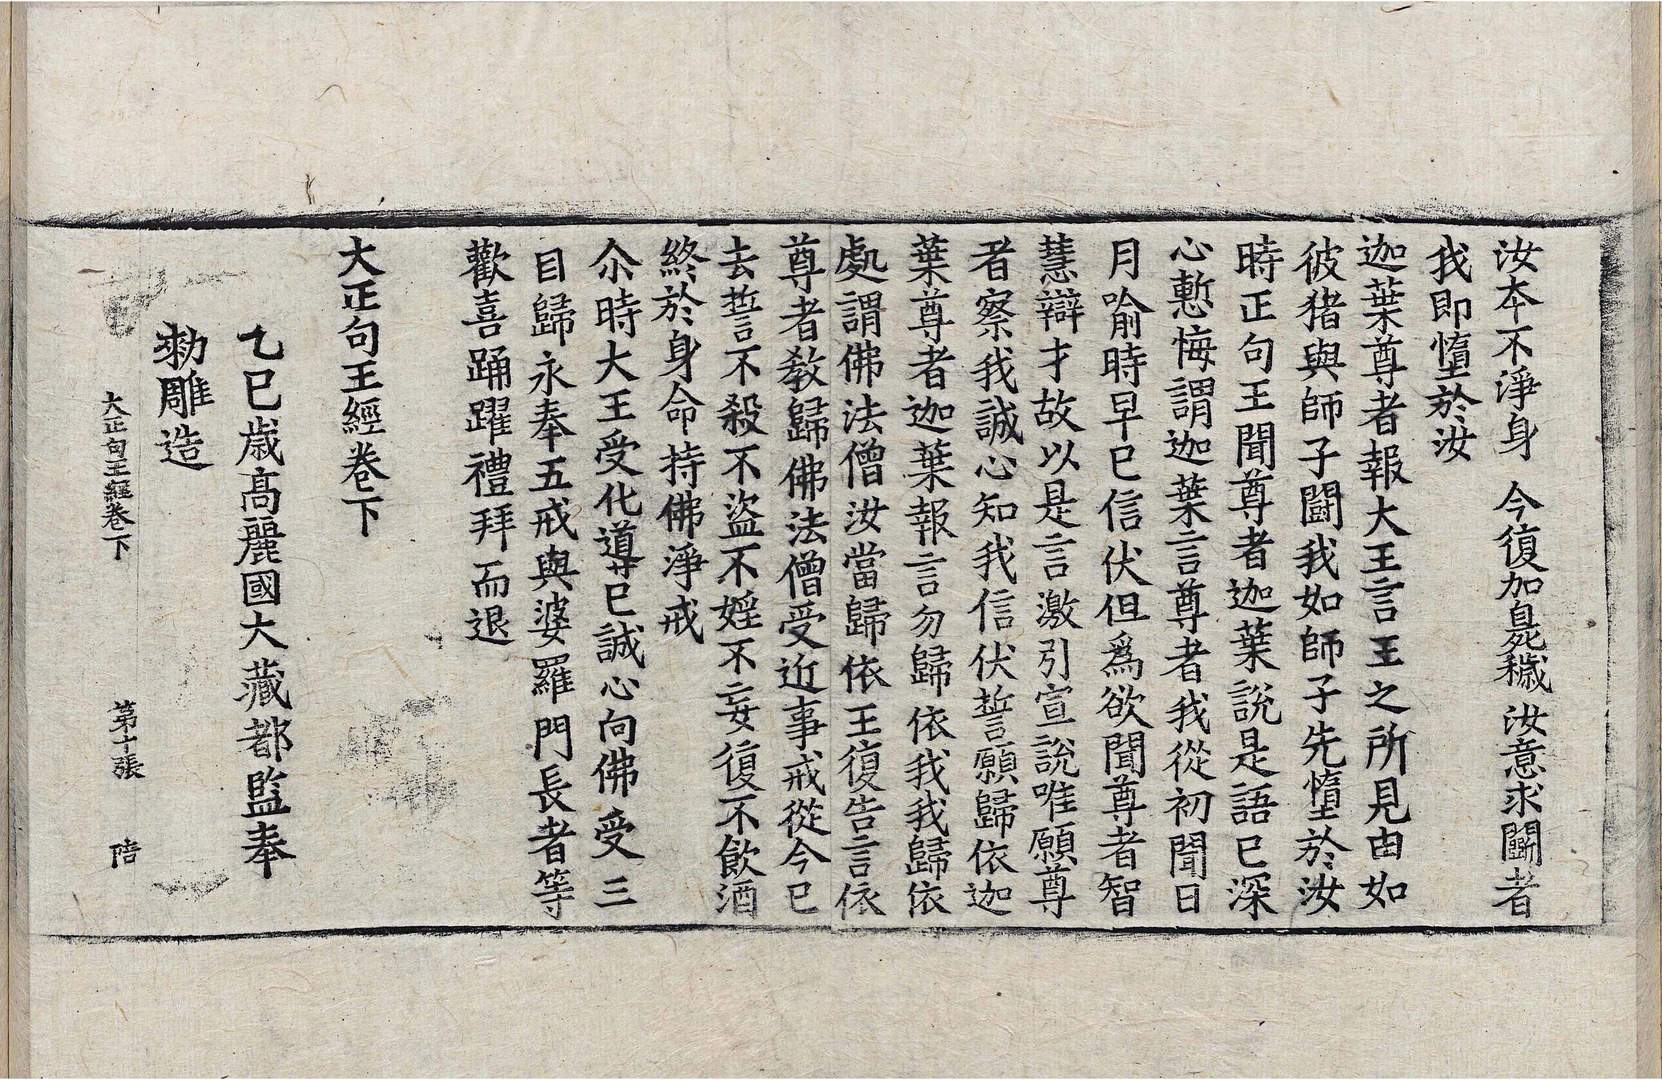 汝本不淨身 今復加臭穢 汝意求鬪者
我即墮於汝
迦葉尊者報大王言王之所見由如
彼猪與師子鬪我如師子先墮於汝
時正句王聞尊者迦葉說是語已深
心慙悔謂迦葉言尊者我從初聞日
月喻時早已信伏但爲欲聞尊者智
慧辯才故以是言激引宣說唯願尊
者察我誠心知我信伏誓願歸依迦
葉尊者迦葉報言勿歸依我我歸依
處謂佛法僧汝當歸依王復告言依
尊者教歸佛法僧受近事戒從今已
去誓不殺不盜不婬不妄復不飮酒
終於身命持佛淨戒
尒時大王受化導已誠心向佛受三
目歸永奉五戒與婆羅門長者等
歡喜踊躍禮拜而退
大正句王經卷下
乙巳歲高麗國大藏都監奉
勅雕造
大正句王經卷下 第十張 陪